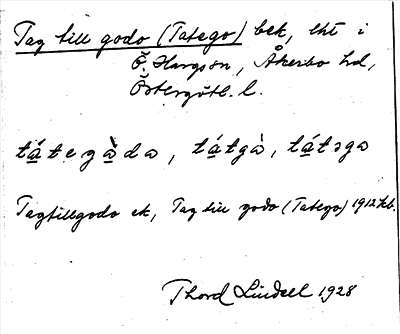 Tag till godo (Tatego) bek, lht i
Ö. Hargson, Åkerbo hd,
Östergötl. l.
tátegàda, tátgà, tátəga
Tagtillgodo ek, Tag till godo (Tatego) 1912 kb.
Thord Lindell 1928